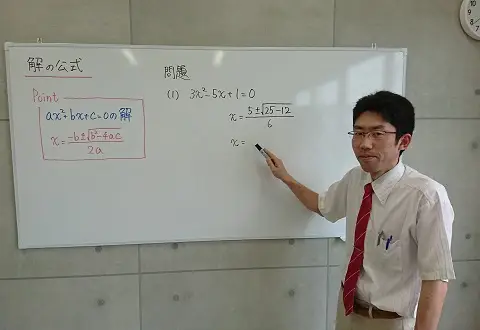 解の公式
Point
ax²+bx+c=0の解
x=(-b±√(b²-4ac))/2a
問題
(1) 3x²-5x+1=0
x=(5±√(25-12))/6
x=